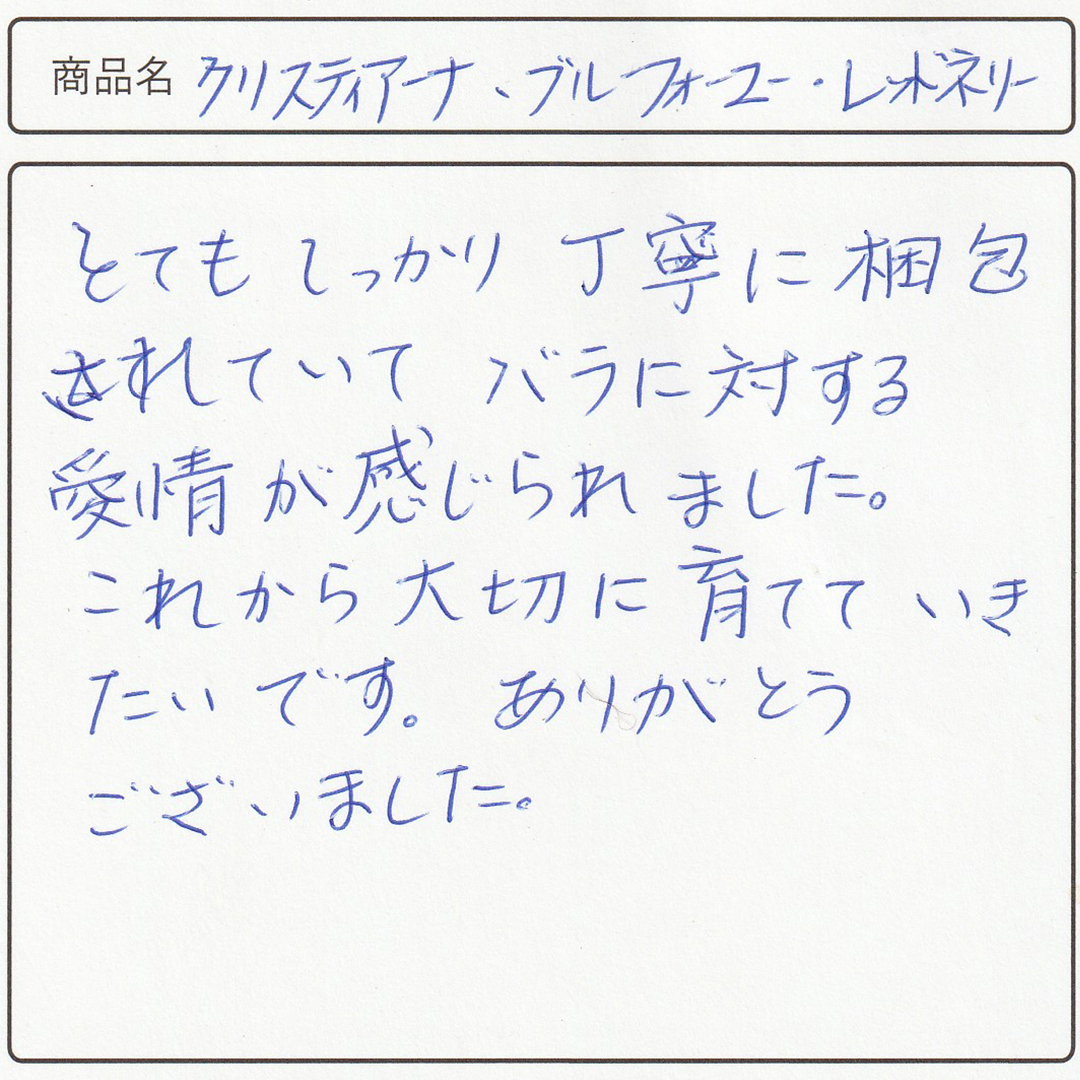 商品名 クリスティアーナ、ブルーフォーユー・レッドネリー
とてもしっかり 丁寧に梱包
されていて バラに対する
愛情が感じられました。
これから大切に育てていき
たいです。 ありがとう
ございました。